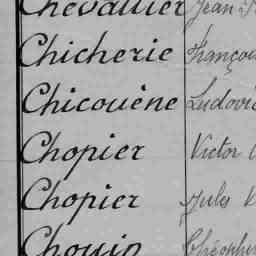 Chevallier Jean
Chicherie Françou
Chicouène Ludovic
Chopier Victor
Chopier Jules
Chouin Théophile